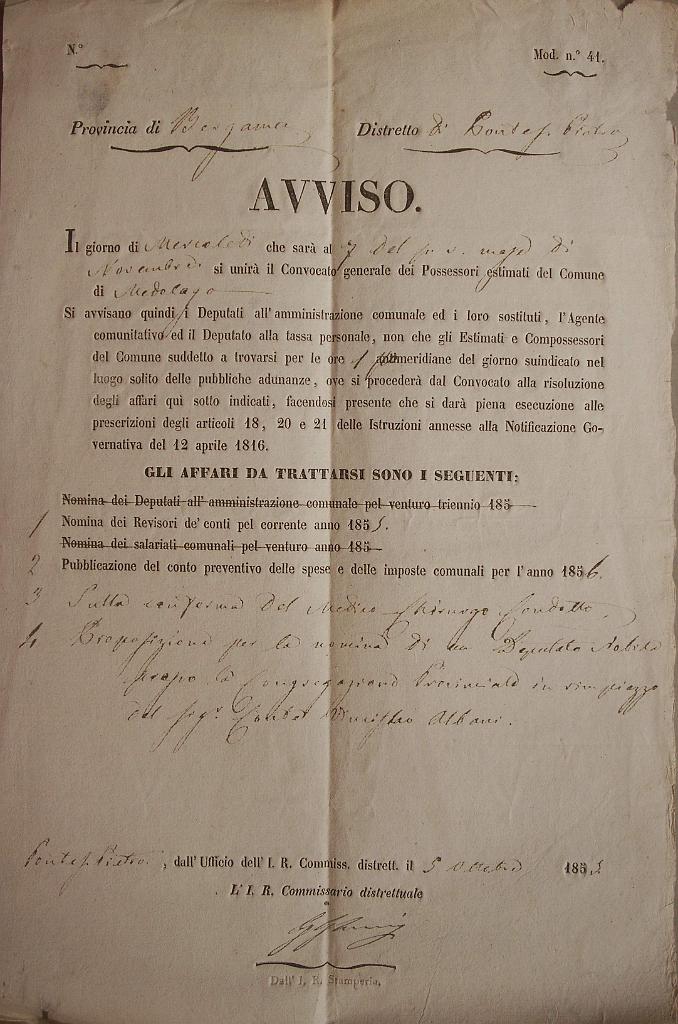 N.° Mod. n.° 41.
Provincia di Bergamo Distretto di Ponte S. Pietro
AVVISO.
Il giorno di Mercoledì che sarà al 7 del p. v. mese di
Novembre si unirà il Convocato generale dei Possessori estimati del Comune
di Medolago
Si avvisano quindi i Deputati all'amministrazione comunale ed i loro sostituti, l'Agente
comunitativo ed il Deputato alla tassa personale, non che gli Estimati e Compossessori
del Comune suddetto a trovarsi per le ore 1 pomeridiane del giorno suindicato nel
luogo solito delle pubbliche adunanze, ove si procederà dal Convocato alla risoluzione
degli affari qui sotto indicati, facendosi presente che si darà piena esecuzione alle
prescrizioni degli articoli 18, 20 e 21 delle Istruzioni annesse alla Notificazione Go-
vernativa del 12 aprile 1816.
GLI AFFARI DA TRATTARSI SONO I SEGUENTI:
Nomina dei Deputati all'amministrazione comunale pel venturo triennio 185
1 Nomina dei Revisori de' conti pel corrente anno 1855.
Nomina dei salariati comunali pel venturo anno 185
2 Pubblicazione del conto preventivo delle spese e delle imposte comunali per l'anno 1856.
3 Sulla conferma del Medico Chirurgo Condotto.
4 Proposizione per la nomina di un Deputato Nobile
presso la Congregazione Provinciale in rimpiazzo
del sigr. Conte Albani.
Ponte S. Pietro, dall'Ufficio dell'I. R. Commiss. distrett. il 5 Ottobre 1855
L'I. R. Commissario distrettuale
Dall'I. R. Stamperia.